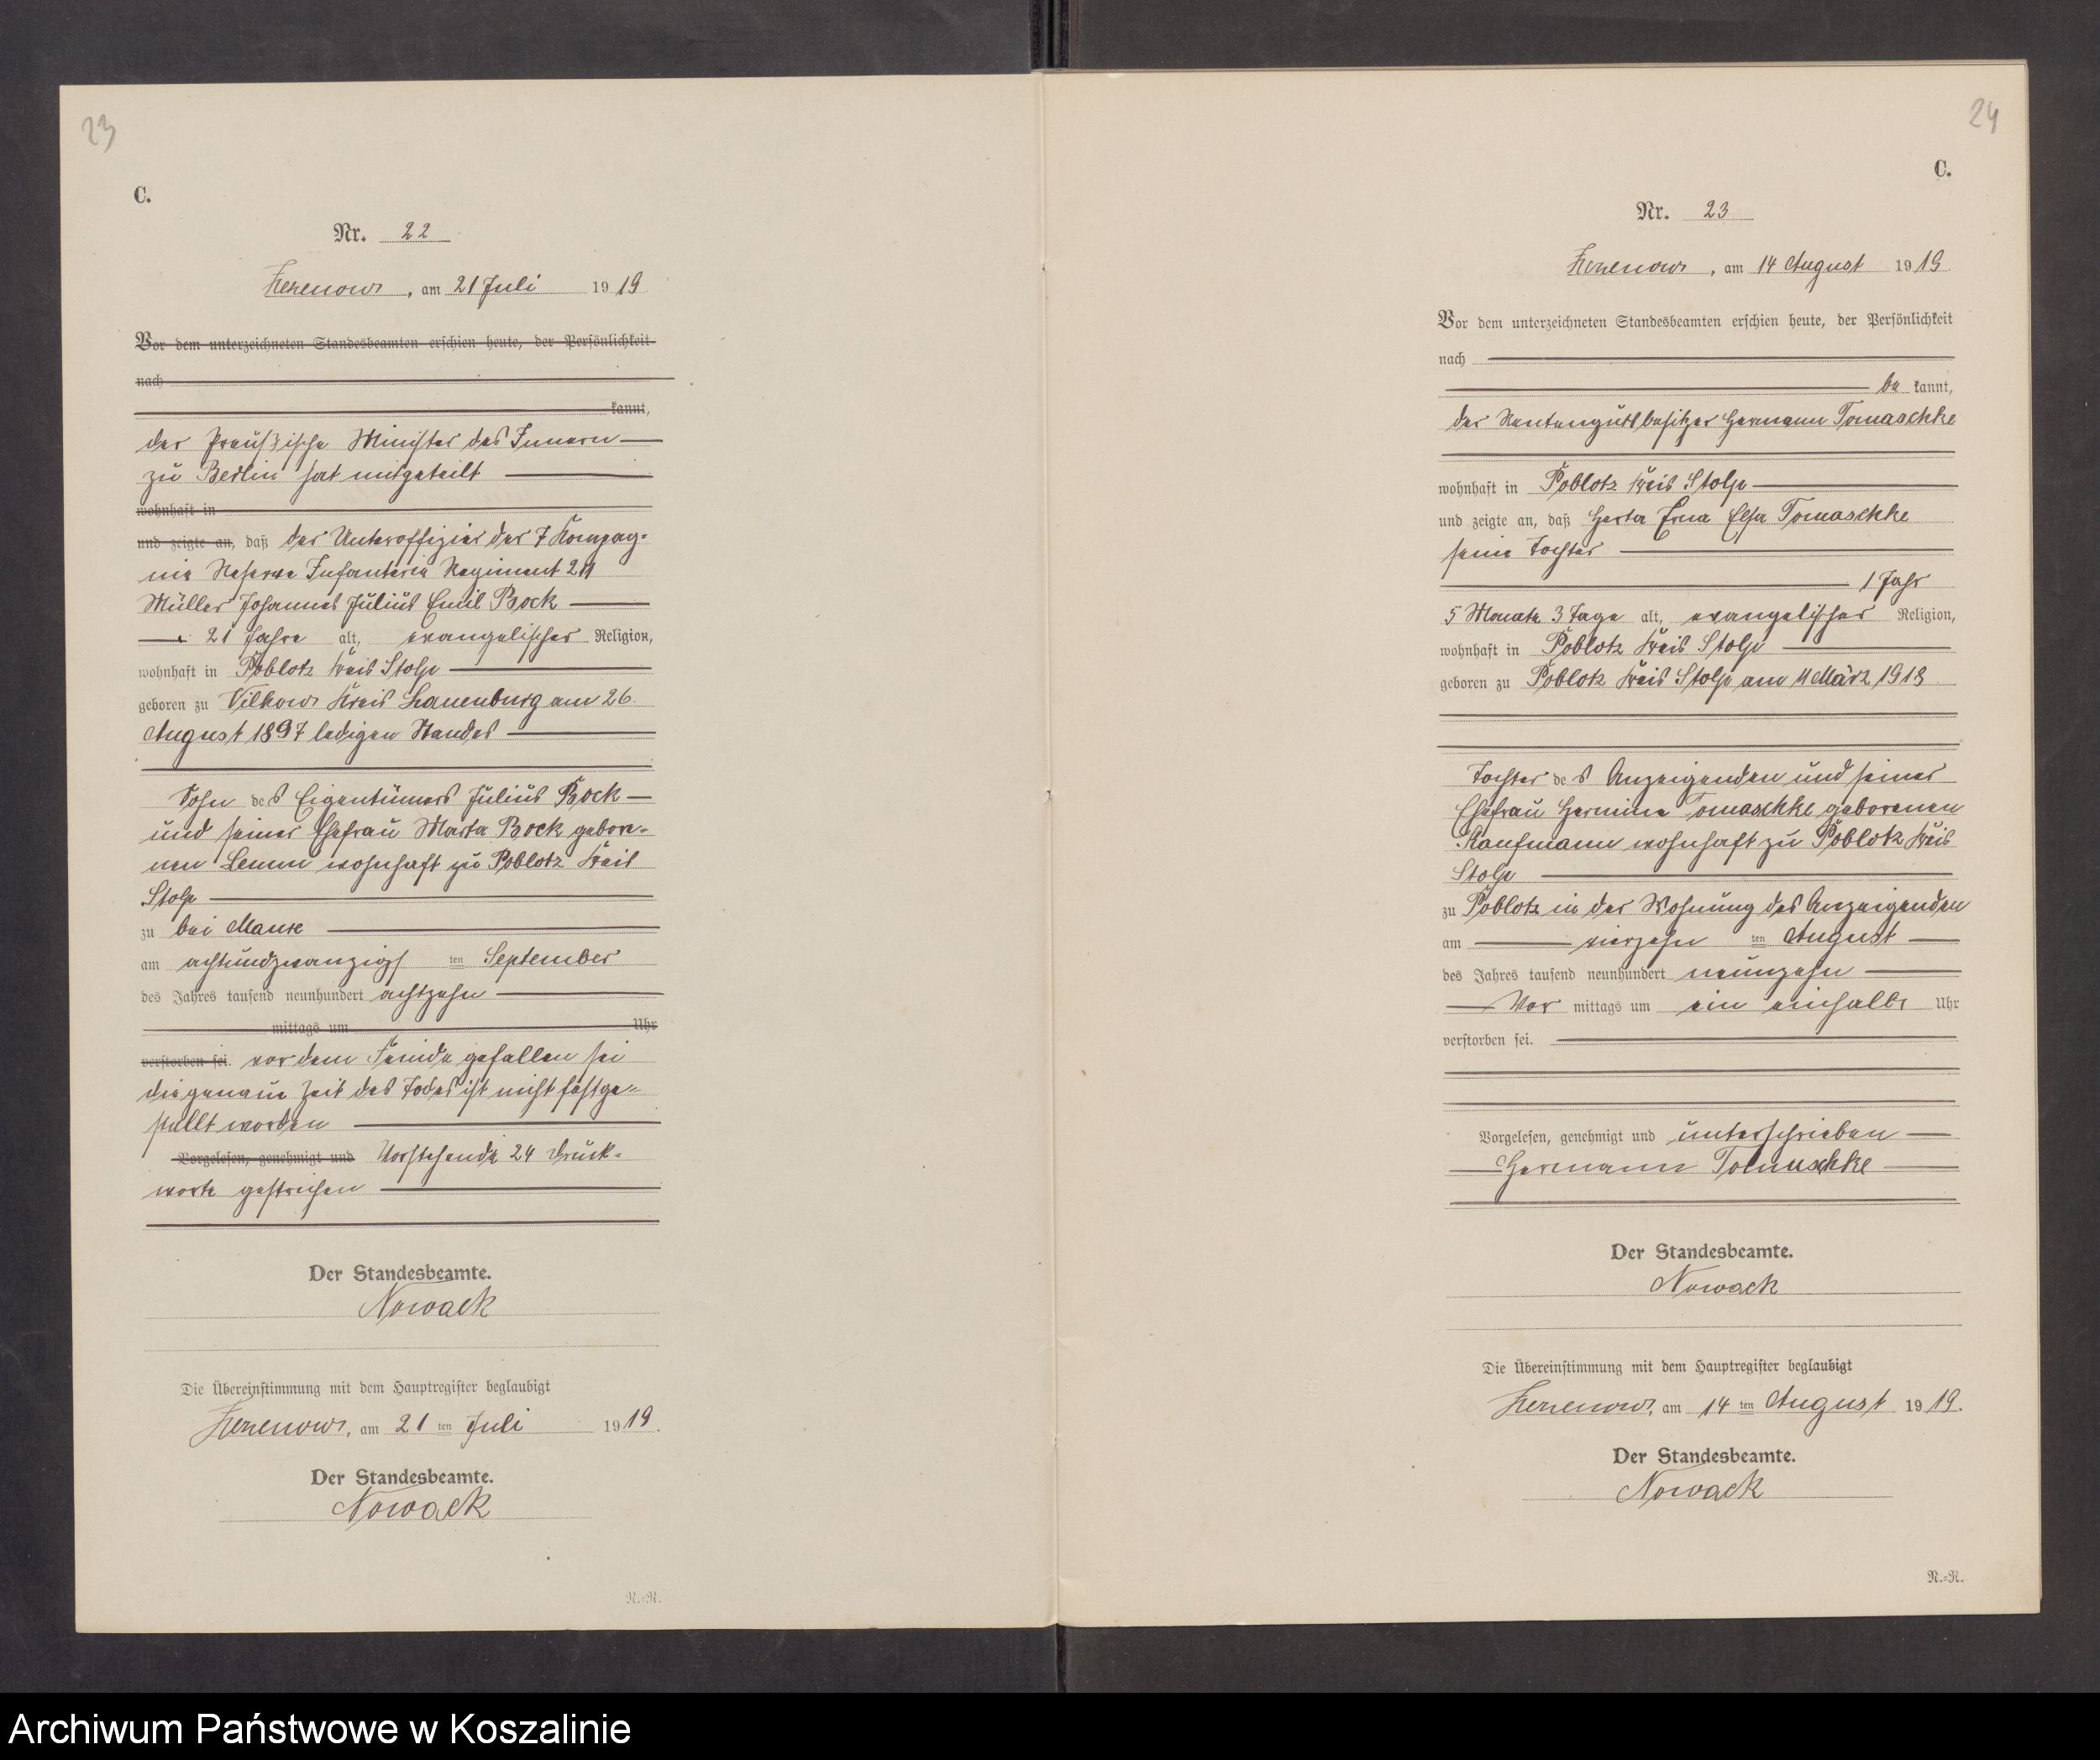 23
C.
Nr. 22
Zezenow, am 21 Juli 1919
Vor dem unterzeichneten Standesbeamten erschien heute, der Persönlichkeit
nach
kannt,
der Preußische Minister des Innern
zu Berlin hat mitgeteilt
wohnhaft in
und zeigte an, daß der Unteroffizier der 7 Kompag-
nie Reserve Infanterie Regiment 211
Müller Johannes Julius Emil Bock
21 Jahre alt, evangelischer Religion,
wohnhaft in Poblotz Kreis Stolp
geboren zu Vilkow Kreis Lauenburg am 26
August 1897 ledigen Standes
Sohn des Eigentümers Julius Bock
und seiner Ehefrau Marta Bock gebore-
nen Lemm wohnhaft zu Poblotz Kreis
Stolp
zu bei Manre
am achtundzwanzigsten September
des Jahres tausend neunhundert achtzehn
mittags um Uhr
verstorben sei. vor dem Feinde gefallen sei
die genaue Zeit des Todes ist nicht festge-
stellt worden
Vorgelesen, genehmigt und Vorstehende 24 Druck-
worte gestrichen
Der Standesbeamte.
Nowack
Die Übereinstimmung mit dem Hauptregister beglaubigt
Zezenow, am 21 ten Juli 1919.
Der Standesbeamte.
Nowack
R.-R.
24
C.
Nr. 23
Zezenow, am 14 August 1919
Vor dem unterzeichneten Standesbeamten erschien heute, der Persönlichkeit
nach
be kannt,
der Rentengutsbesitzer Hermann Tomaschke
wohnhaft in Poblotz Kreis Stolp
und zeigte an, daß Herta Erna Elsa Tomaschke
seine Tochter
1 Jahr
5 Monate 3 Tage alt, evangelischer Religion,
wohnhaft in Poblotz Kreis Stolp
geboren zu Poblotz Kreis Stolp am 11 März 1918
Tochter des Anzeigenden und seiner
Ehefrau Hermine Tomaschke geborenen
Kaufmann wohnhaft zu Poblotz Kreis
Stolp
zu Poblotz in der Wohnung des Anzeigenden
am vierzehn ten August
des Jahres tausend neunhundert neunzehn
Vor mittags um ein einhalb Uhr
verstorben sei.
Vorgelesen, genehmigt und unterschrieben
Hermann Tomaschke
Der Standesbeamte.
Nowack
Die Übereinstimmung mit dem Hauptregister beglaubigt
Zezenow, am 14 ten August 1919.
Der Standesbeamte.
Nowack
R.-R.
Archiwum Państwowe w Koszalinie